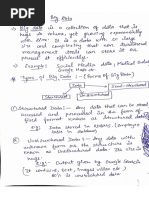 Big Data
Big Data is a collection of data that is
huge in volume, yet growing exponentially
with time. It is a data with so large
size and complexity that can traditional
management tools can store it or
process it efficiently.
Example: Social Media data, Medical Industry
Google Maps
Types of Big Data :- (Forms of Big Data)
Data
Structured
Unstructured
Semi-Structured
Structured Data :- Any data that can be stored
accessed and processed in the form of
fixed format is known as structured data.
Eg:- Data server to address Employee
data in database.
Unstructured Data :- Any data with
unknown form or the structure is
classified as unstructured data.
Eg:- Output given by Google Search
(It contains, text, images video etc.)
80% is unstructured data